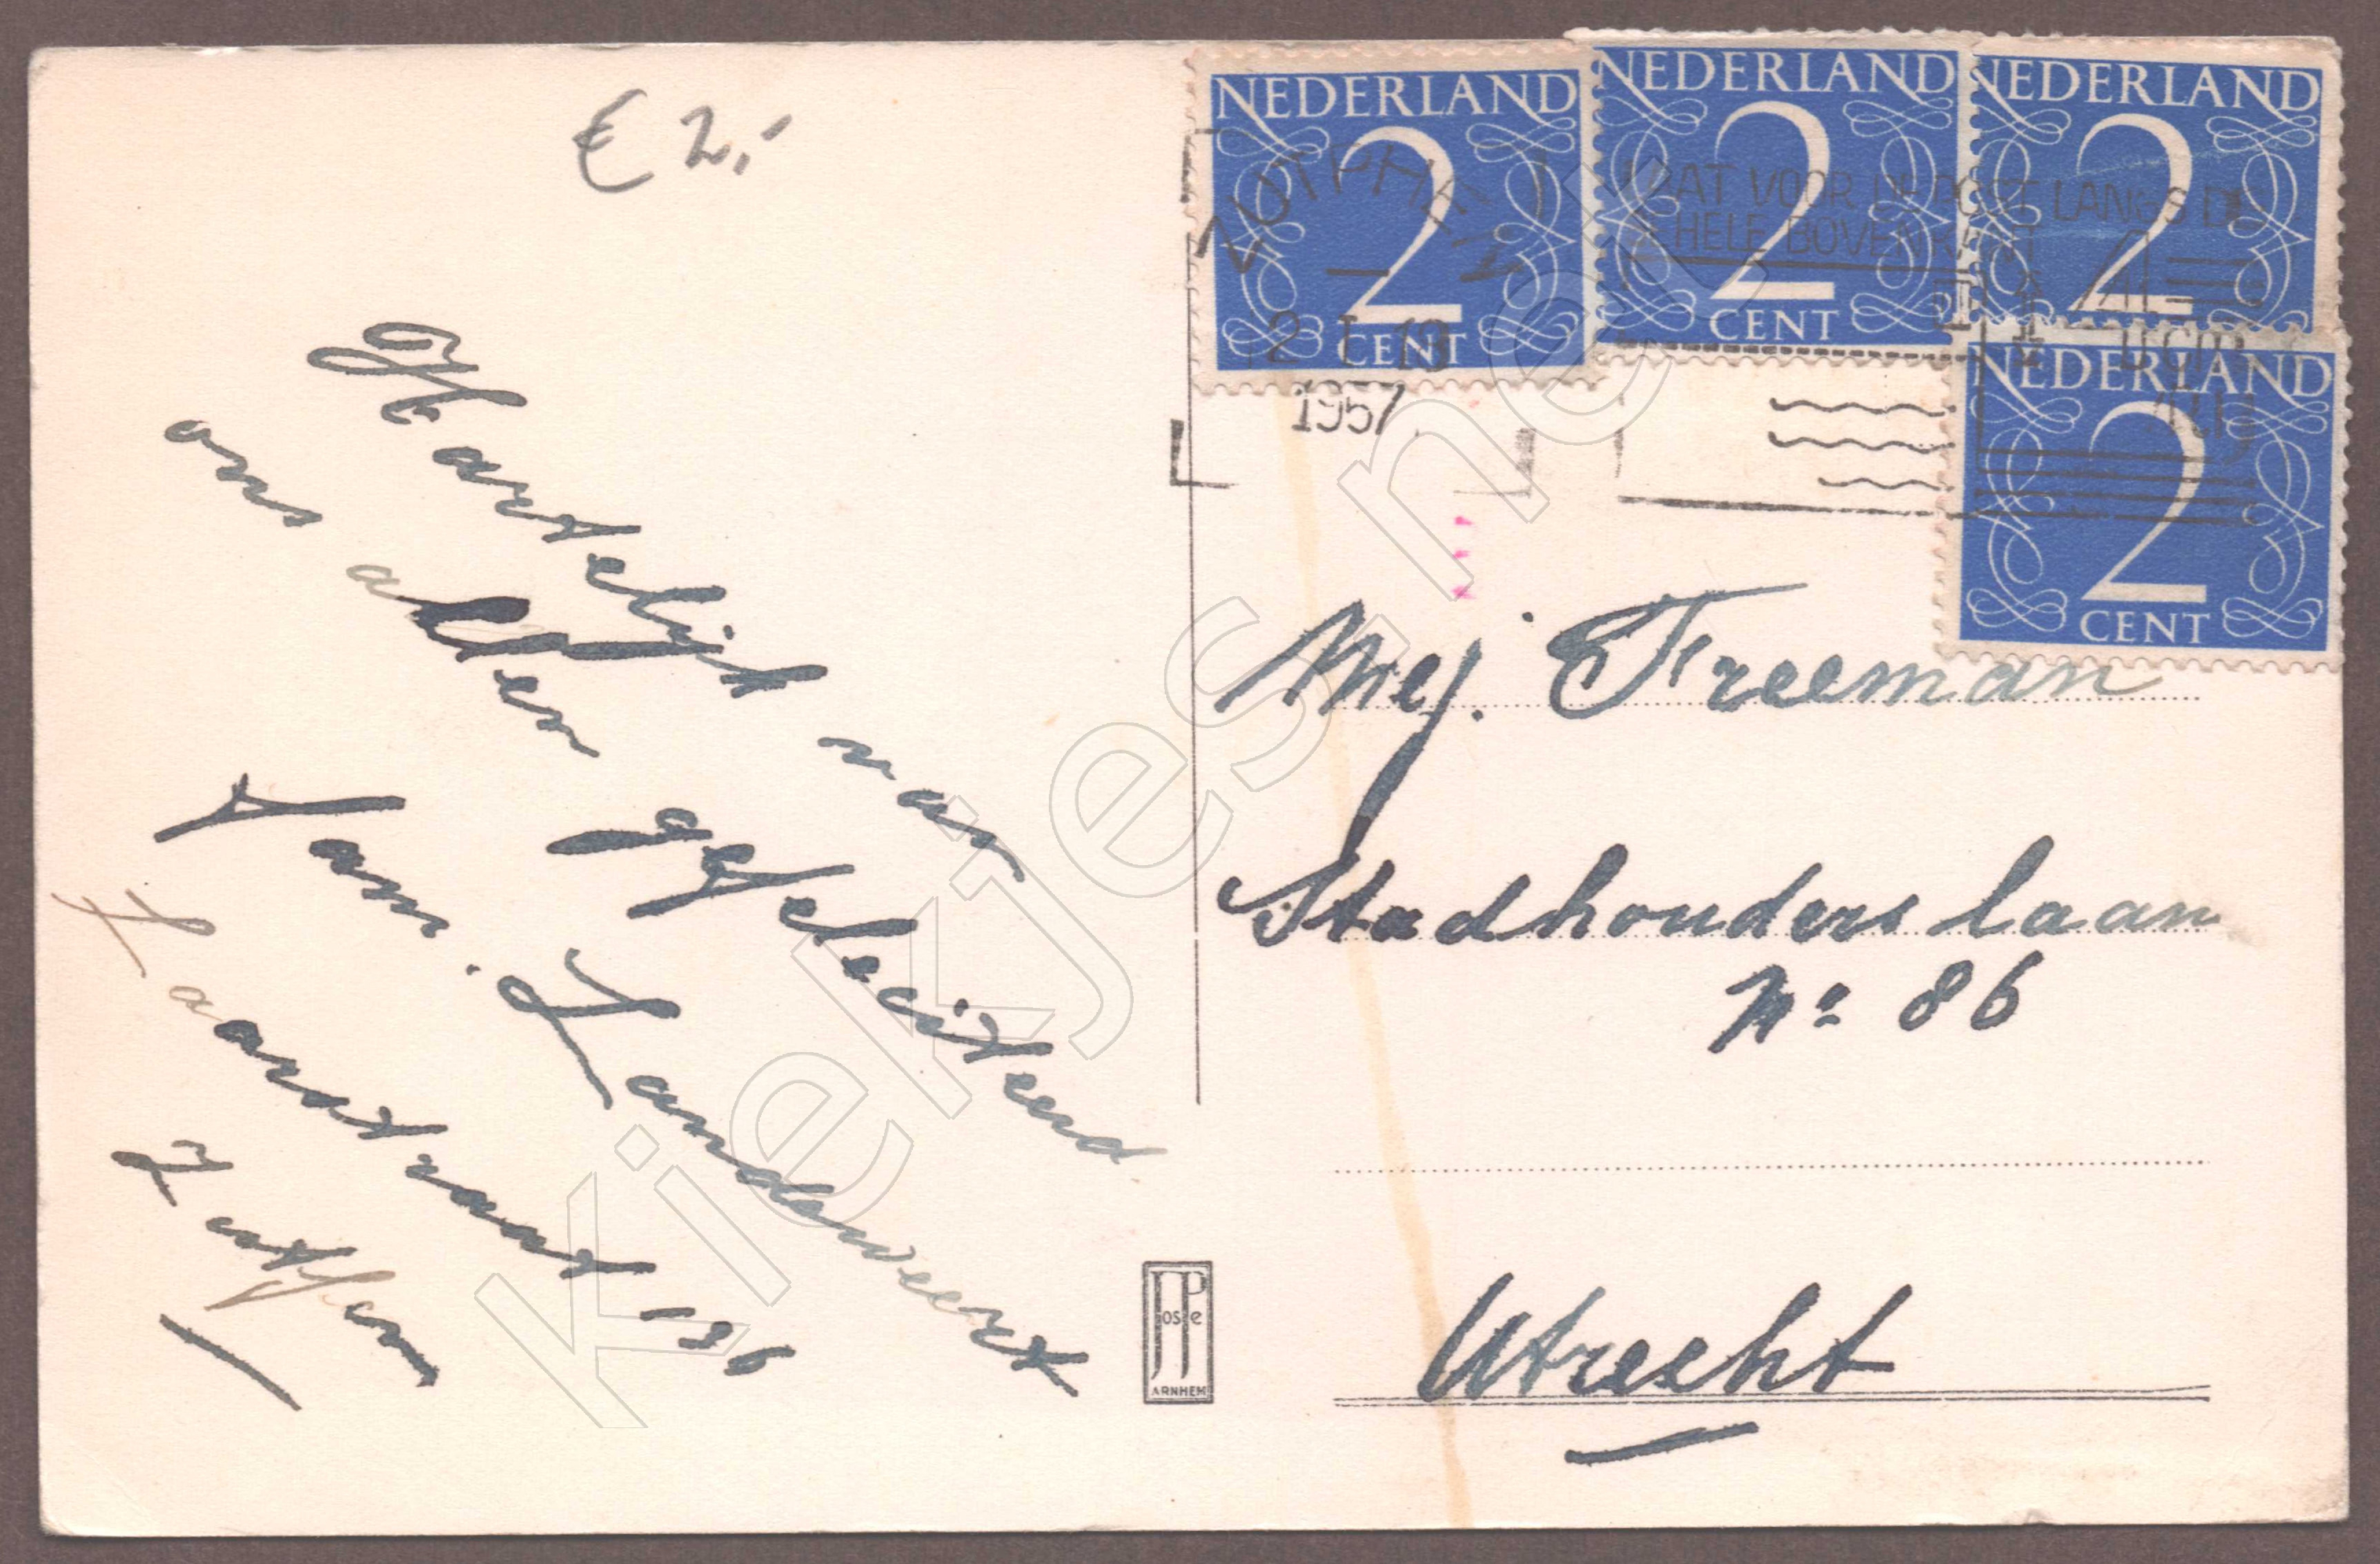 € 2,-
Hartelijk van
ons allen gefeliciteerd
Fam. Landeweert
Laarstraat 136
Zutfen
NEDERLAND
2
CENT
NEDERLAND
2
CENT
NEDERLAND
2
NEDERLAND
2
CENT
ZUTPHEN
2 I 19
1957
LAAT VOOR POST LANGS DE
HELE BOVENKANT
4
Mej. Freeman
Stadhouderslaan
No 86
Utrecht
JP
JosPe
ARNHEM
kiekjes.net